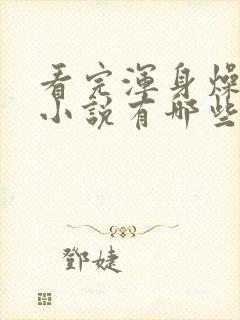 看完渾身燥
小說有哪些
鄧婕